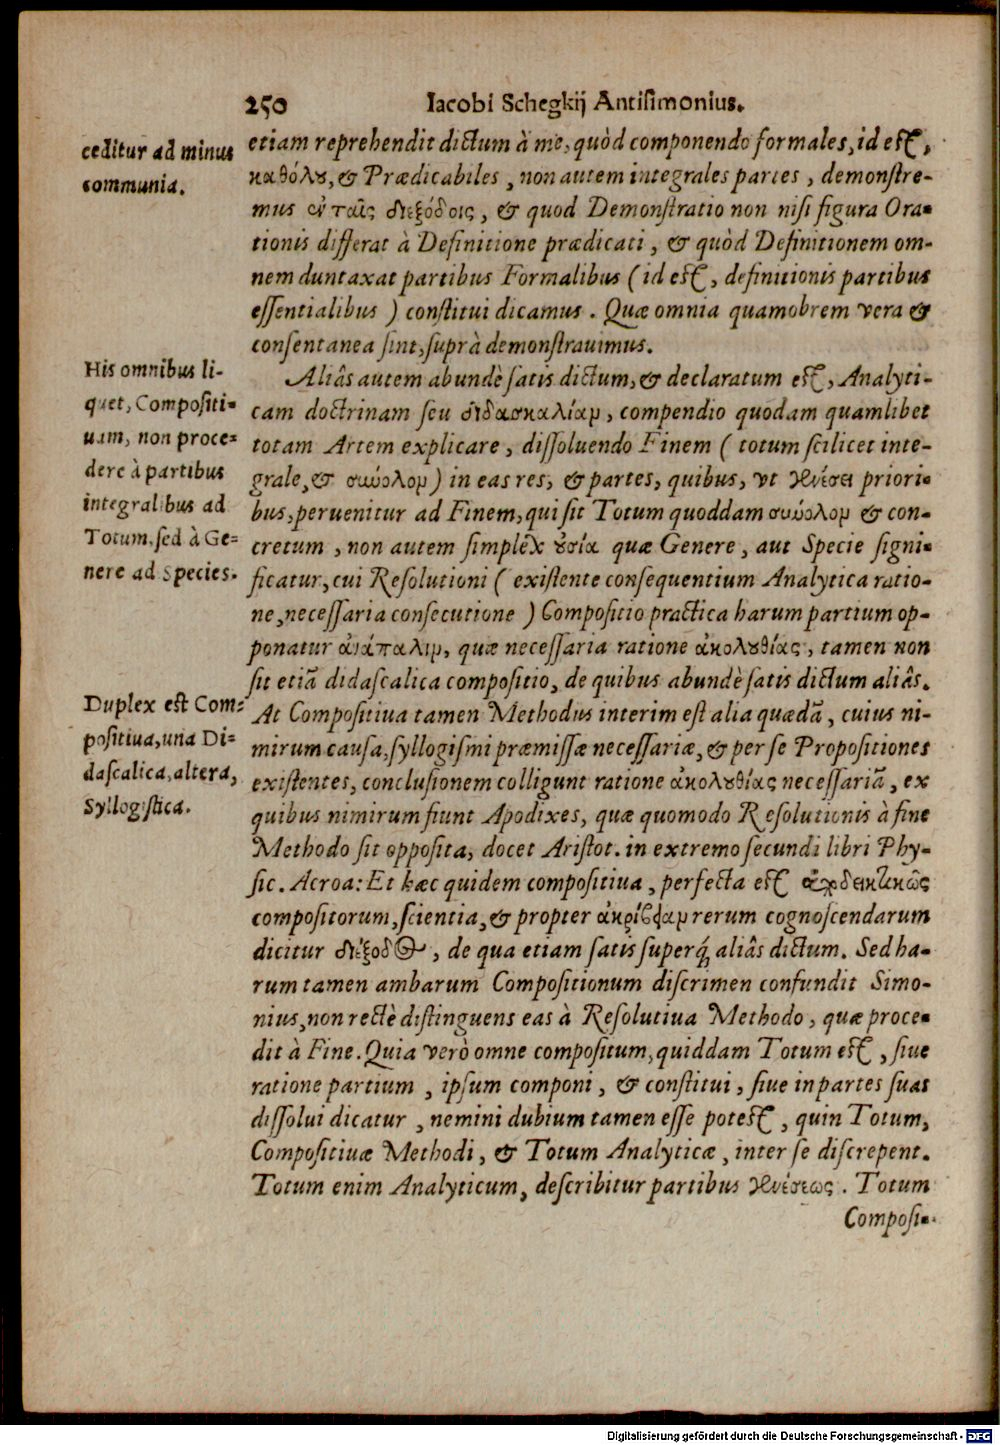 250 Iacobi Schegkij Antisimonius.
ceditur ad minus
communia.
etiam reprehendit dictum à me, quòd componendo formales, id est,
καθόλȣ, & Prædicabiles, non autem integrales partes, demonstre-
mus ἐν ταῖς διεξόδοις, & quod Demonstratio non nisi figura Ora-
tionis differat à Definitione prædicati, & quòd Definitionem om-
nem duntaxat partibus Formalibus (id est, definitionis partibus
essentialibus) constitui dicamus. Quæ omnia quamobrem vera &
consentanea sint, suprà demonstrauimus.
His omnibus li-
quet, Compositi-
uam, non proce-
dere à partibus
integralibus ad
Totum, sed à Ge-
nere ad Species.
Aliâs autem abundè satis dictum, & declaratum est, Analyti-
cam doctrinam seu διδασκαλίαμ, compendio quodam quamlibet
totam Artem explicare, dissoluendo Finem (totum scilicet inte-
grale, & σιώολομ) in eas res, & partes, quibus, vt γενέσει priori-
bus, peruenitur ad Finem, qui sit Totum quoddam σιώολομ & con-
cretum, non autem simplex ȣσία quæ Genere, aut Specie signi-
ficatur, cui Resolutioni (existente consequentium Analytica ratio-
ne, necessaria consecutione) Compositio practica harum partium op-
ponatur ἀνάπαλιμ, quæ necessaria ratione ἀκολȣθίας, tamen non
sit etiã didascalica compositio, de quibus abundè satis dictum aliâs.
Duplex est Com-
positiua, una Di-
dascalica, altera,
Syllogistica.
At Compositiua tamen Methodus interim est alia quædã, cuius ni-
mirum causa, syllogismi præmissæ necessariæ, & per se Propositiones
existentes, conclusionem colligunt ratione ἀκολȣθίας necessariã, ex
quibus nimirum fiunt Apodixes, quæ quomodo Resolutionis à fine
Methodo sit opposita, docet Aristot. in extremo secundi libri Phy-
sic. Acroa: Et hæc quidem compositiua, perfecta est ἀποδεικτικῶς
compositorum, scientia, & propter ἀκρίβειαμ rerum cognoscendarum
dicitur διέξοδος, de qua etiam satis superq́ aliâs dictum. Sed ha-
rum tamen ambarum Compositionum discrimen confundit Simo-
nius, non rectè distinguens eas à Resolutiua Methodo, quæ proce-
dit à Fine. Quia verò omne compositum, quiddam Totum est, siue
ratione partium, ipsum componi, & constitui, siue in partes suas
dissolui dicatur, nemini dubium tamen esse potest, quin Totum,
Compositiuæ Methodi, & Totum Analyticæ, inter se discrepent.
Totum enim Analyticum, describitur partibus γενέσεως. Totum
Composi-
Digitalisierung gefördert durch die Deutsche Forschungsgemeinschaft - DFG